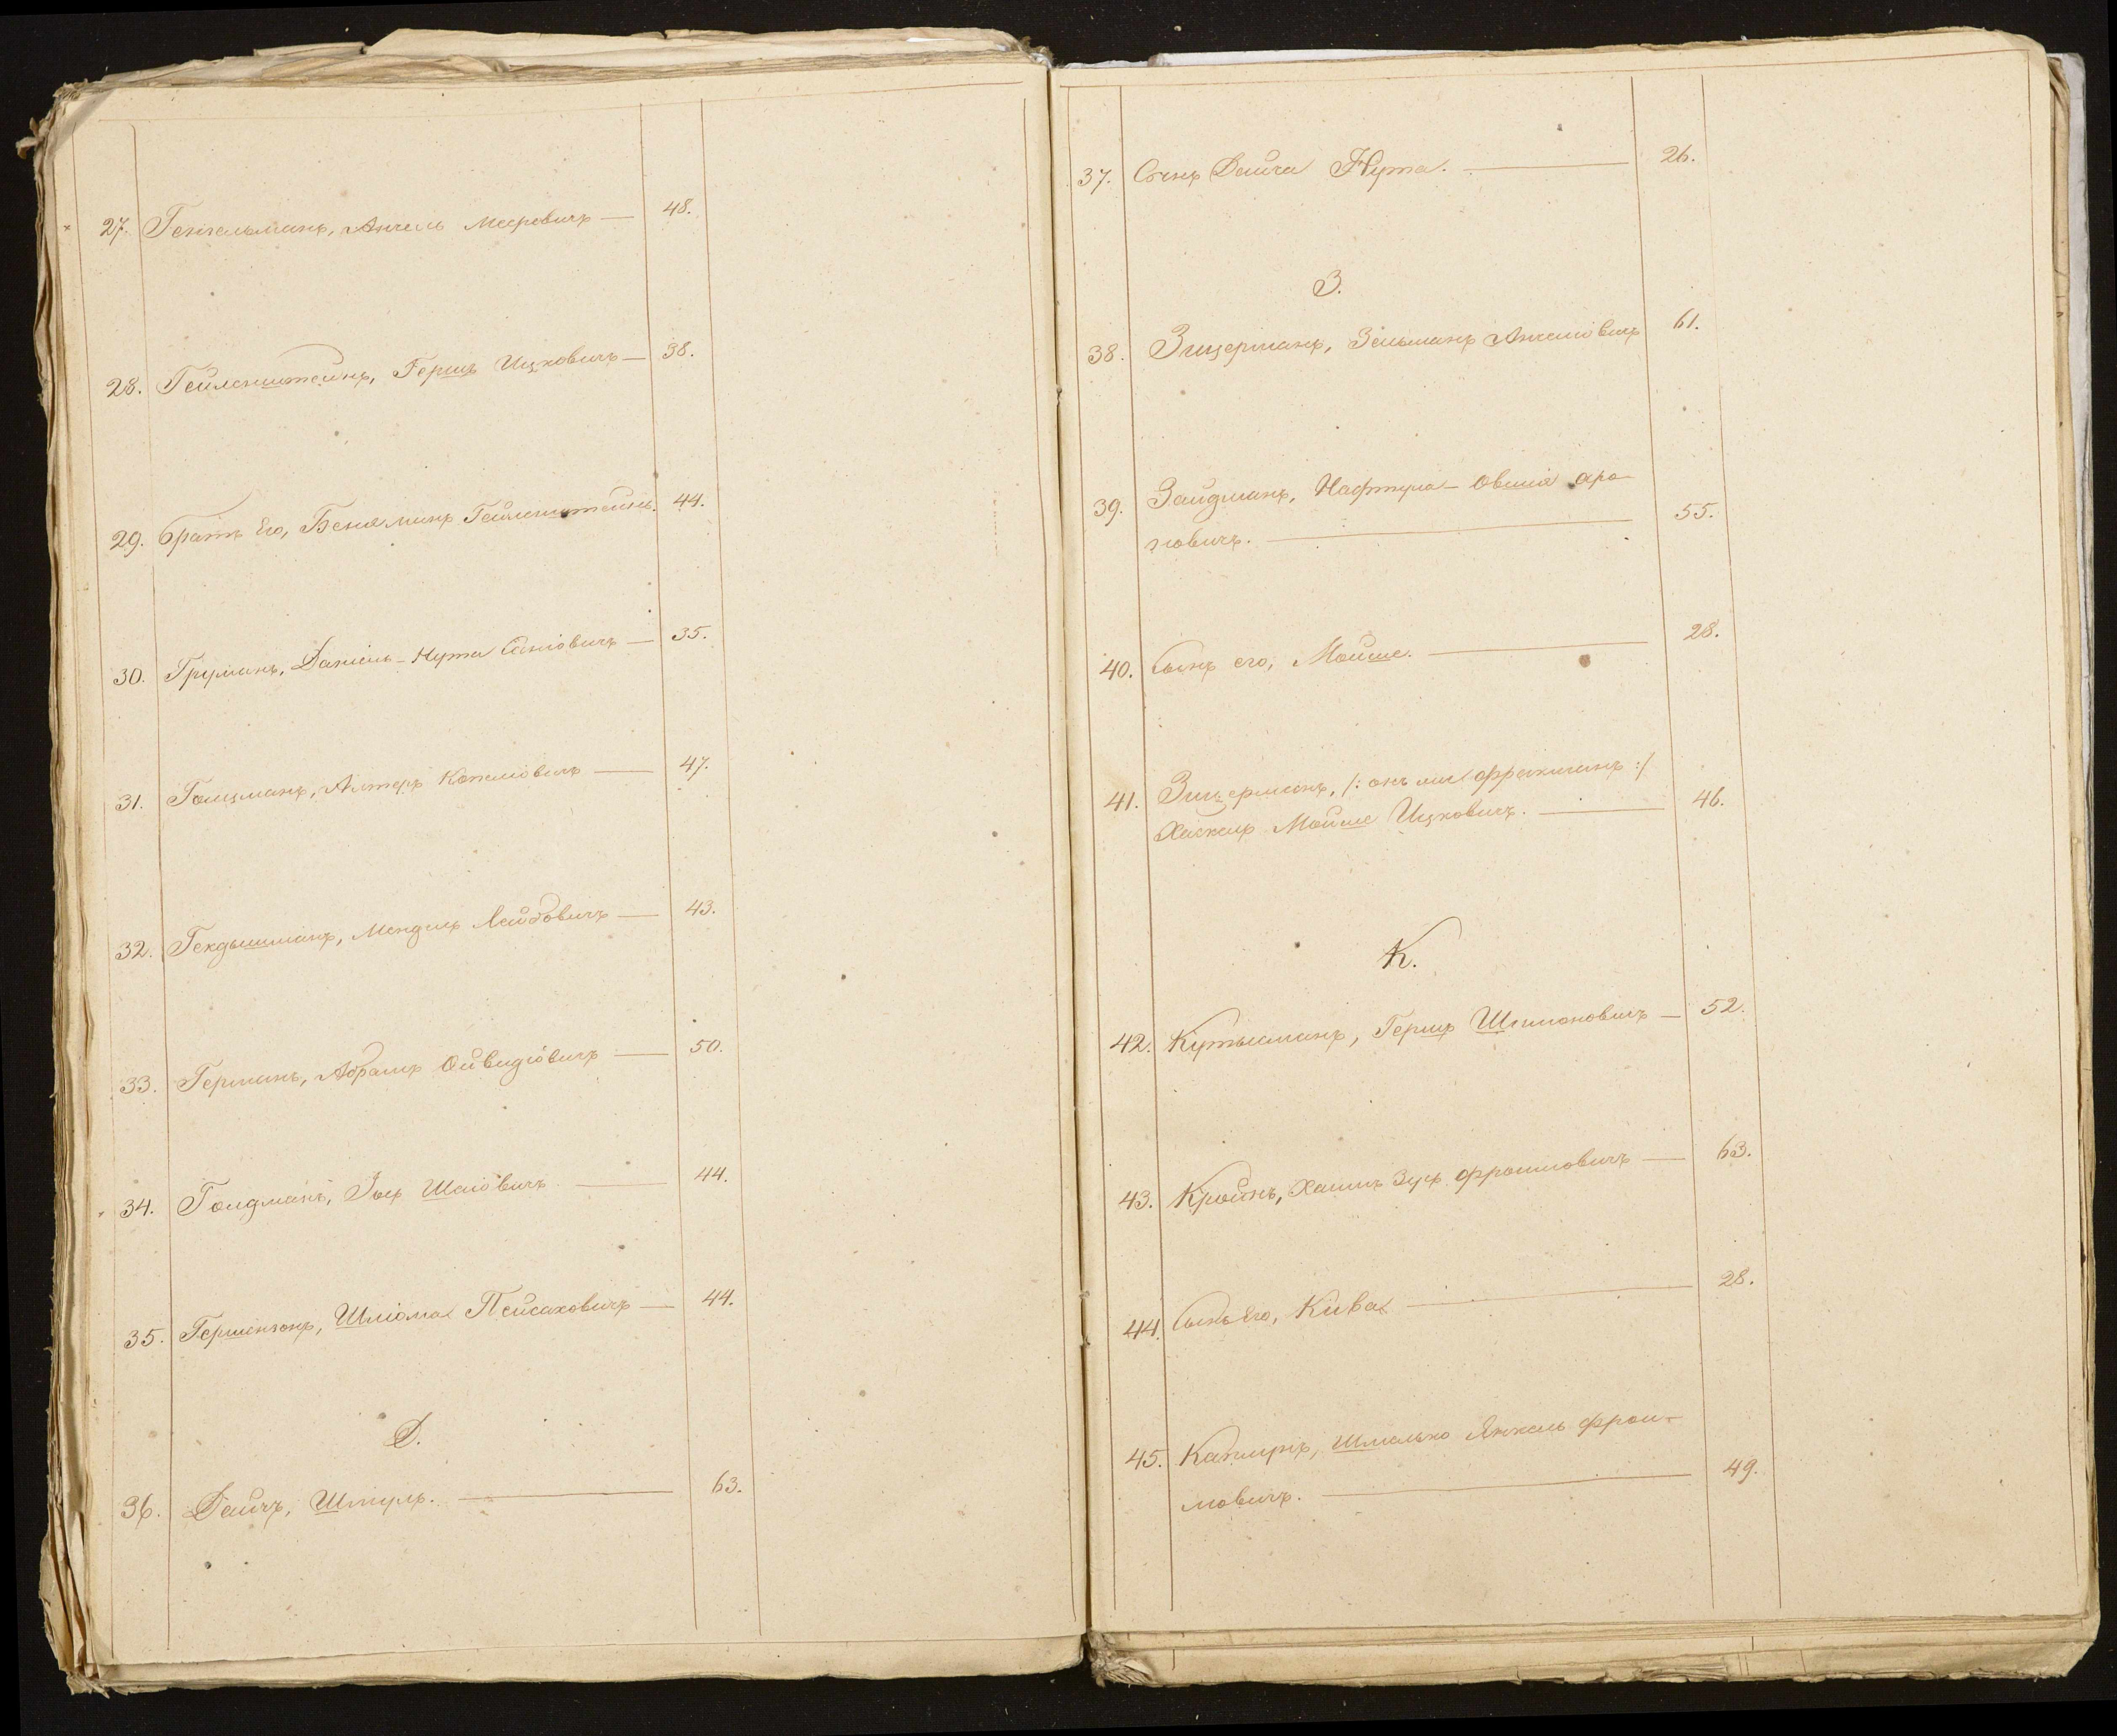 27. Генгельманъ, Анчель Мееровичъ — 48.
28. Гейленштейнъ, Гершъ Ицковичъ — 38.
29. Братъ Его, Беняминъ Гейленштейнъ. 44.
30. Груманъ, Даніель-Нута Саніовичъ — 35.
31. Голцманъ, Алтеръ Копеліовичъ — 47.
32. Гекдышманъ, Мендель Лейбовичъ — 43.
33. Германъ, Абрамъ Ойвидіовичъ — 50.
34. Голдманъ, Іось Шаіовичъ — 44.
35. Гершензонъ, Шліома Пейсаховичъ — 44.
Д.
36. Дайчъ, Шмуль. — 63.
37. Сынъ Дайча Нута. — 26.
З.
38. Зицерманъ, Зельманъ Анчеліовичъ 61.
39. Зайдманъ, Нафтула-Овшія Аро-
новичъ. — 55.
40. Сынъ его, Мойше. — 28.
41. Зицерманъ, /: онъ ли :/
Хаскель Мойше Ицковичъ. — 46.
К.
42. Кутысманъ, Гершъ Шлимоновичъ — 52.
43. Кройнъ, Хаимъ Зусь Фроимовичъ — 63.
44. Сынъ Его, Кива — 28.
45. Каплиръ, Шмелько Янкель Фрои-
мовичъ. — 49.